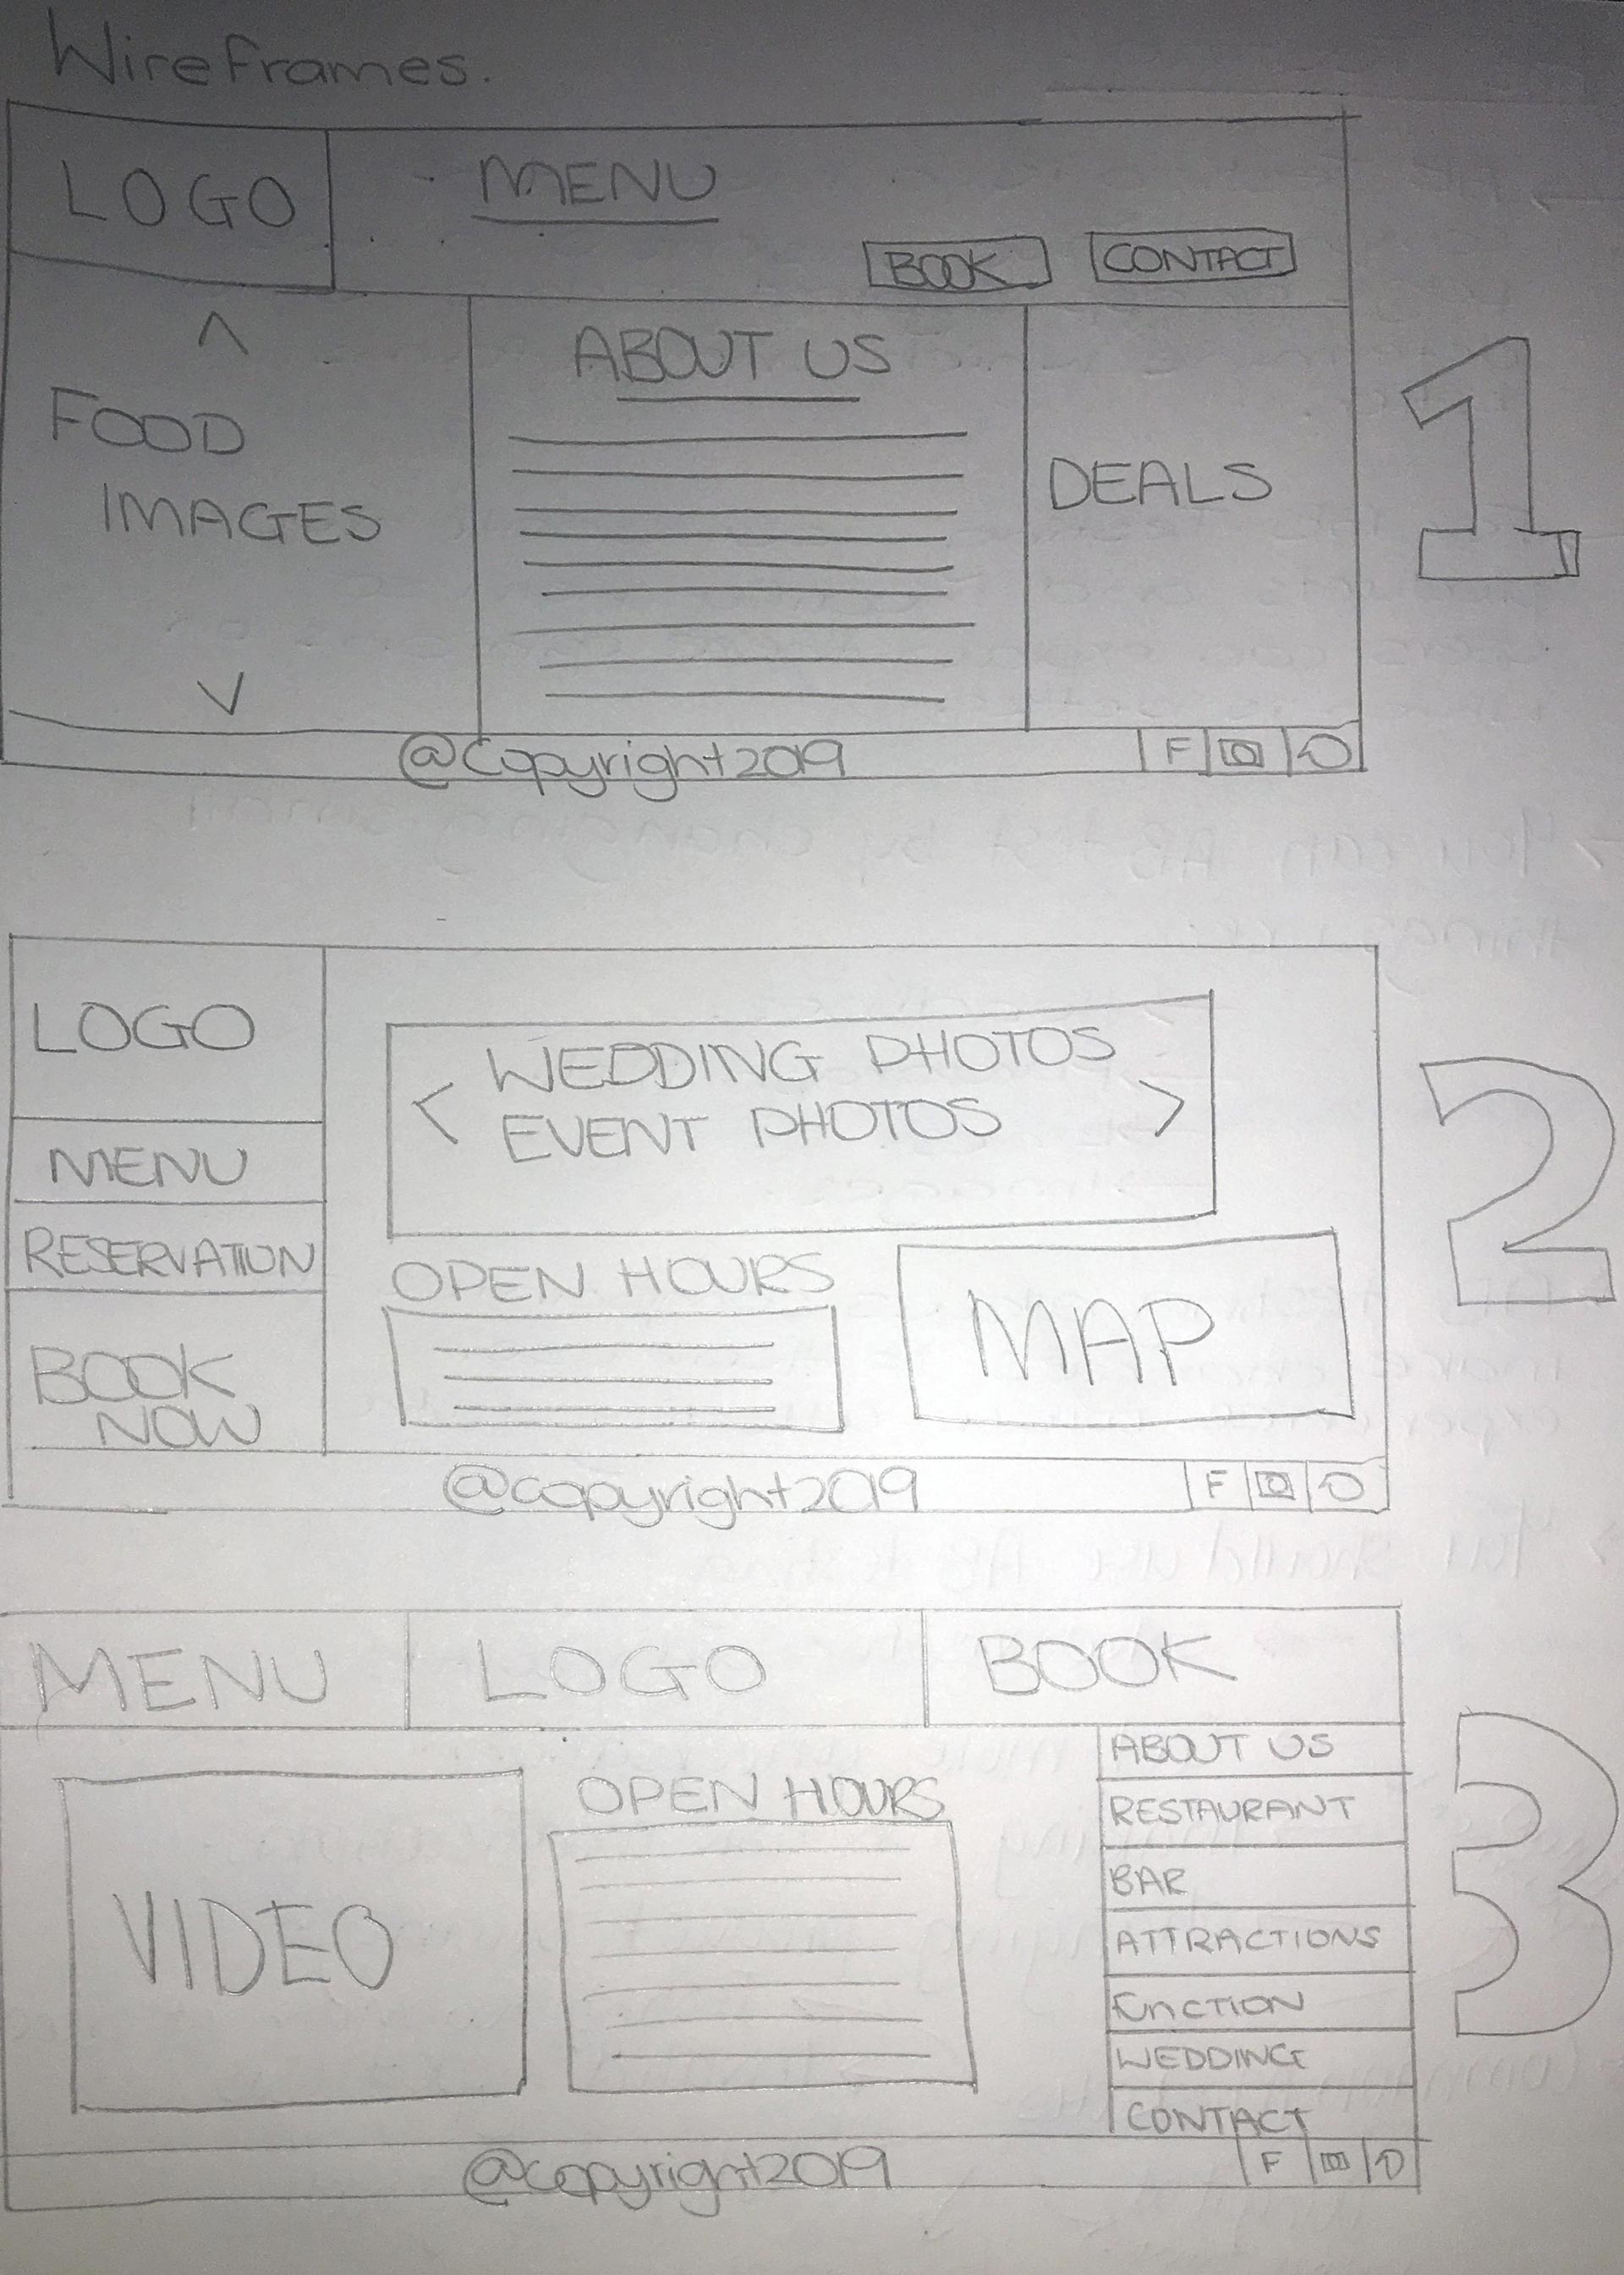 WireFrames.
LOGO
MENU
BOOK
CONTACT
FOOD
IMAGES
ABOUT US
DEALS
1
@Copyright2019
F
LOGO
MENU
RESERVATION
BOOK
NOW
WEDDING PHOTOS
EVENT PHOTOS
OPEN HOURS
MAP
2
@copyright2019
F
MENU
LOGO
BOOK
VIDEO
OPEN HOURS
ABOUT US
RESTAURANT
BAR
ATTRACTIONS
FUnCTION
WEDDING
CONTACT
3
@copyright2019
F